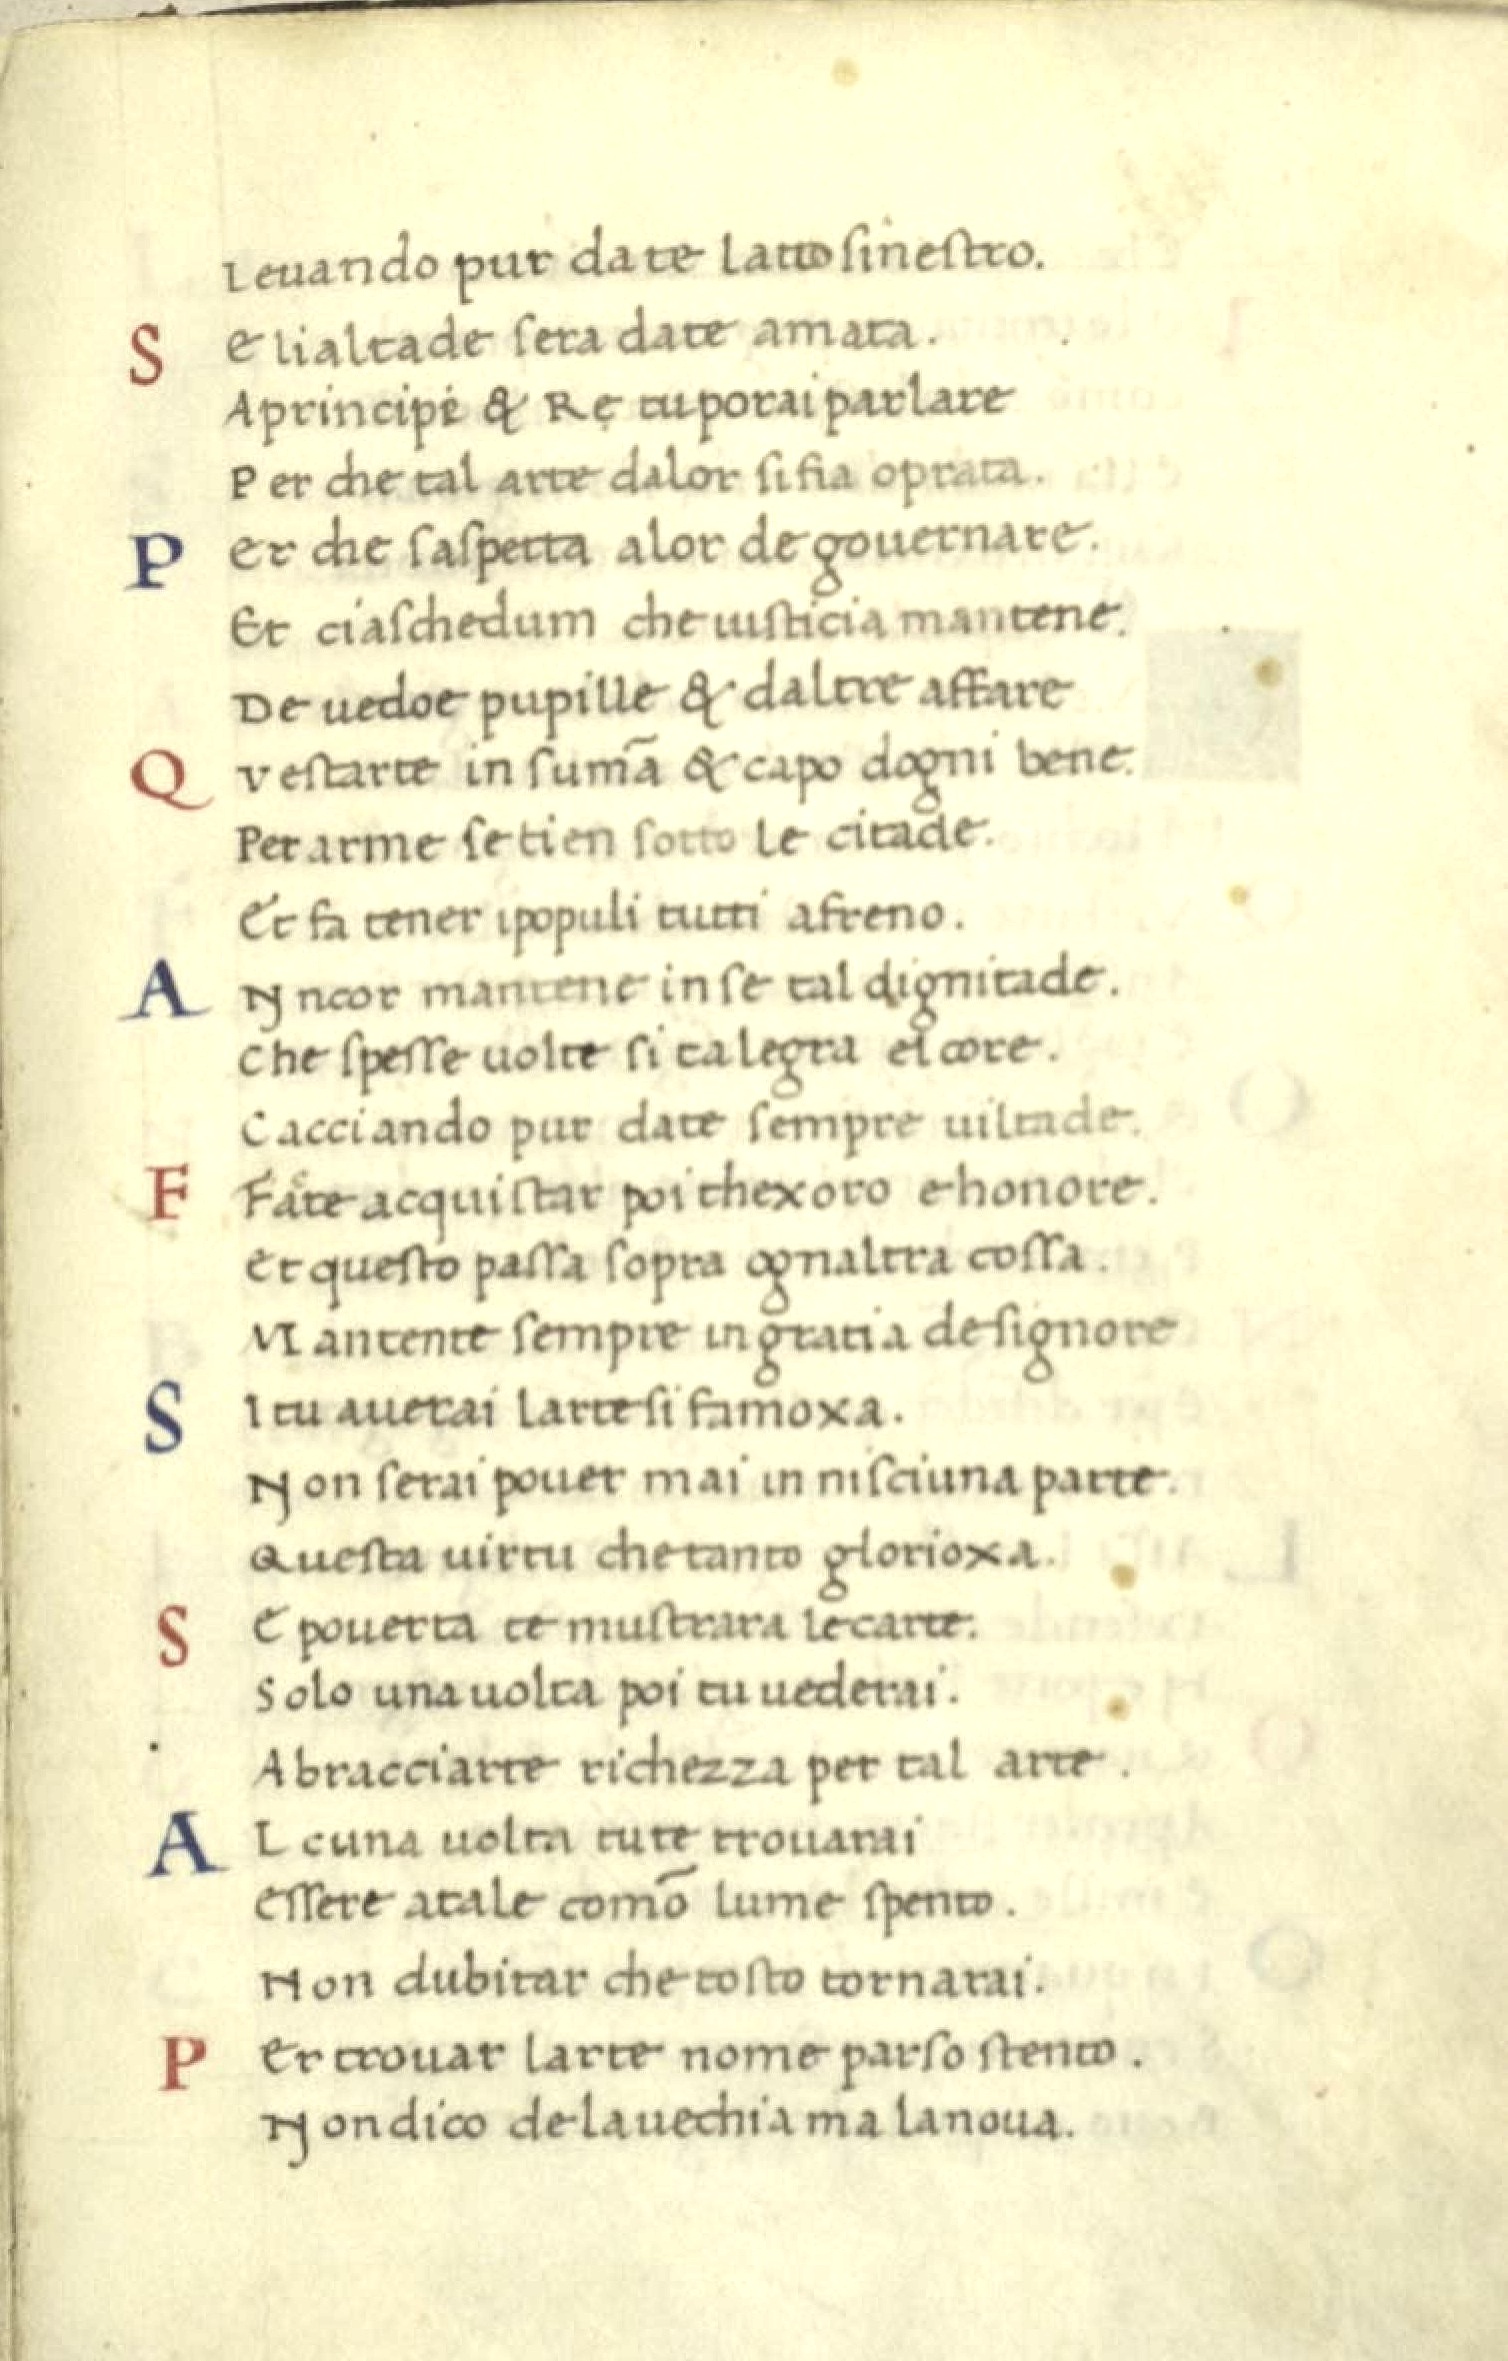 Leuando pur da te latto sinestro.
S E lialtade sera da te amata.
A principi & Rę tu porai parlare
Per che tal arte da lor si fia oprata.
P Er che saspetta a lor de gouernare.
Et ciaschedum che iusticia mantene.
De uedoe pupille & daltre affare
Q Vestarte in sumā & capo dogni bene.
Per arme se tien sotto le citade.
Et fa tener i populi tutti a freno.
A Nncor mantene in se tal dignitade.
Che spesse uolte si ta legra el core.
Cacciando pur da te sempre uiltade.
F Farte acquistar poi thexoro e honore.
Et questo passa sopra ognaltra cossa.
Mantente sempre in gratia de signore
S I tu auerai larte si famoxa.
Non serai pouer mai in nisciuna parte.
Questa uirtu che tanto glorioxa.
S E pouerta te mustrara le carte.
Solo una uolta poi tu uederai.
Abracciarte richezza per tal arte.
A Lcuna uolta tu te trouarai
Essere a tale comō lume spento.
Non dubitar che tosto tornarai.
P Er trouar larte nome parso stento.
Non dico de la uechia ma la noua.